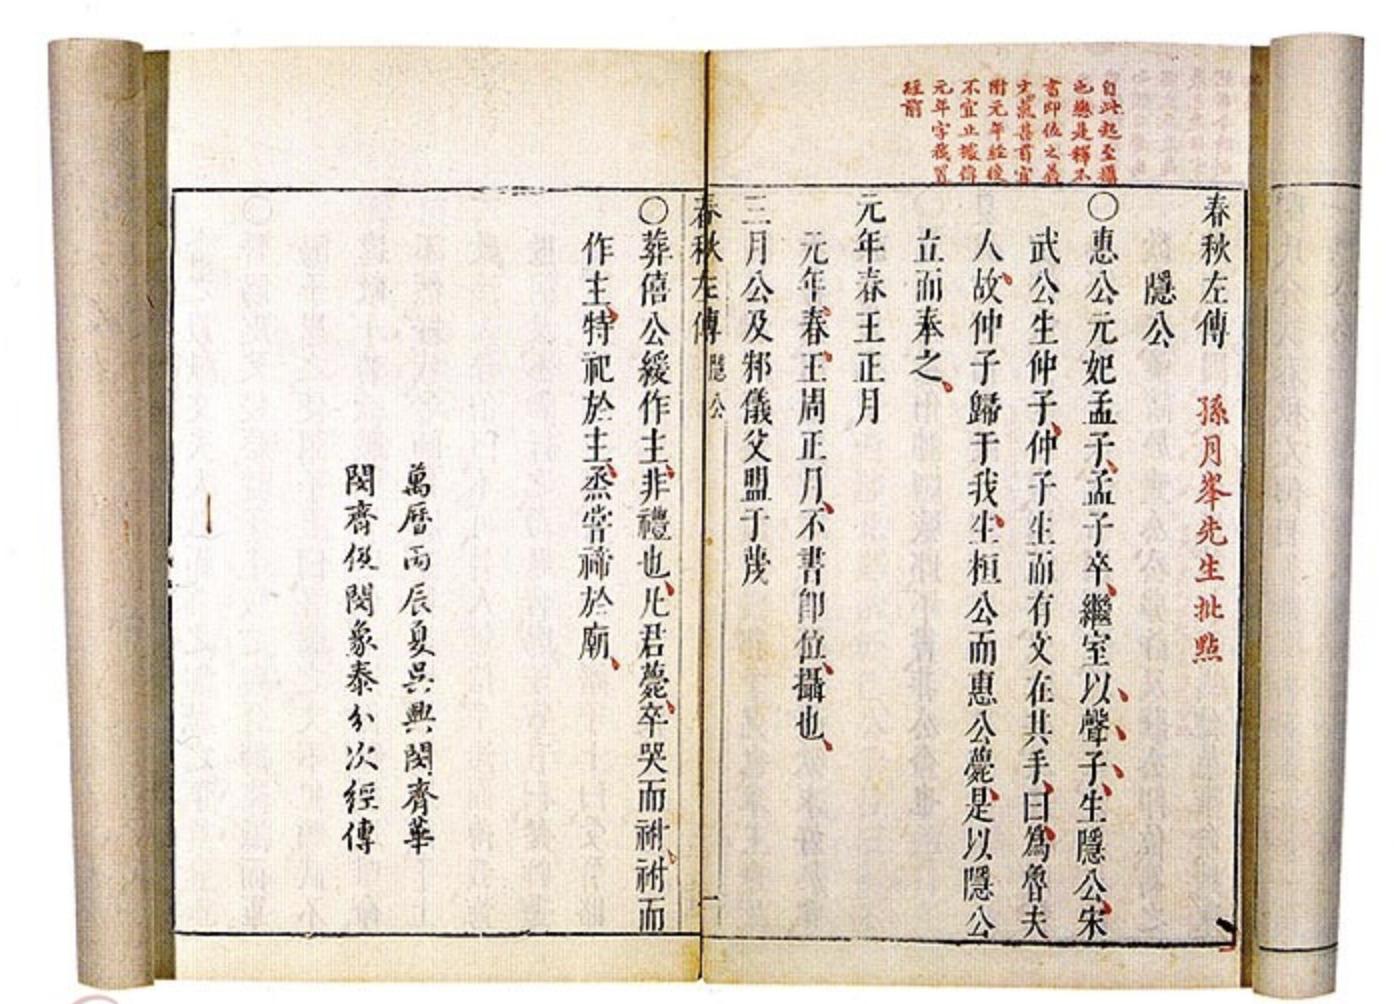 春秋左傳 孫月峯先生批點
隱公
自此起至攝
也總是釋不
書卽位之義
文氣甚貫宜
附元年經後
不宜止據傳
元年字復置
經前
〇惠公元妃孟子孟子卒繼室以聲子生隱公宋
武公生仲子仲子生而有文在其手曰爲魯夫
人故仲子歸于我生桓公而惠公薨是以隱公
立而奉之
元年春王正月
元年春王周正月不書卽位攝也
三月公及邾儀父盟于蔑
春秋左傳 隱公 一
〇葬僖公緩作主非禮也凡君薨卒哭而祔祔而
作主特祀於主烝嘗禘於廟
萬曆丙辰夏吳興閔齊華
閔齊伋閔象泰分次經傳